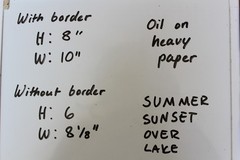 With border
H: 8"
W: 10"
Oil on
heavy
paper
Without border
H: 6
W: 8 1/8"
SUMMER
SUNSET
OVER
LAKE